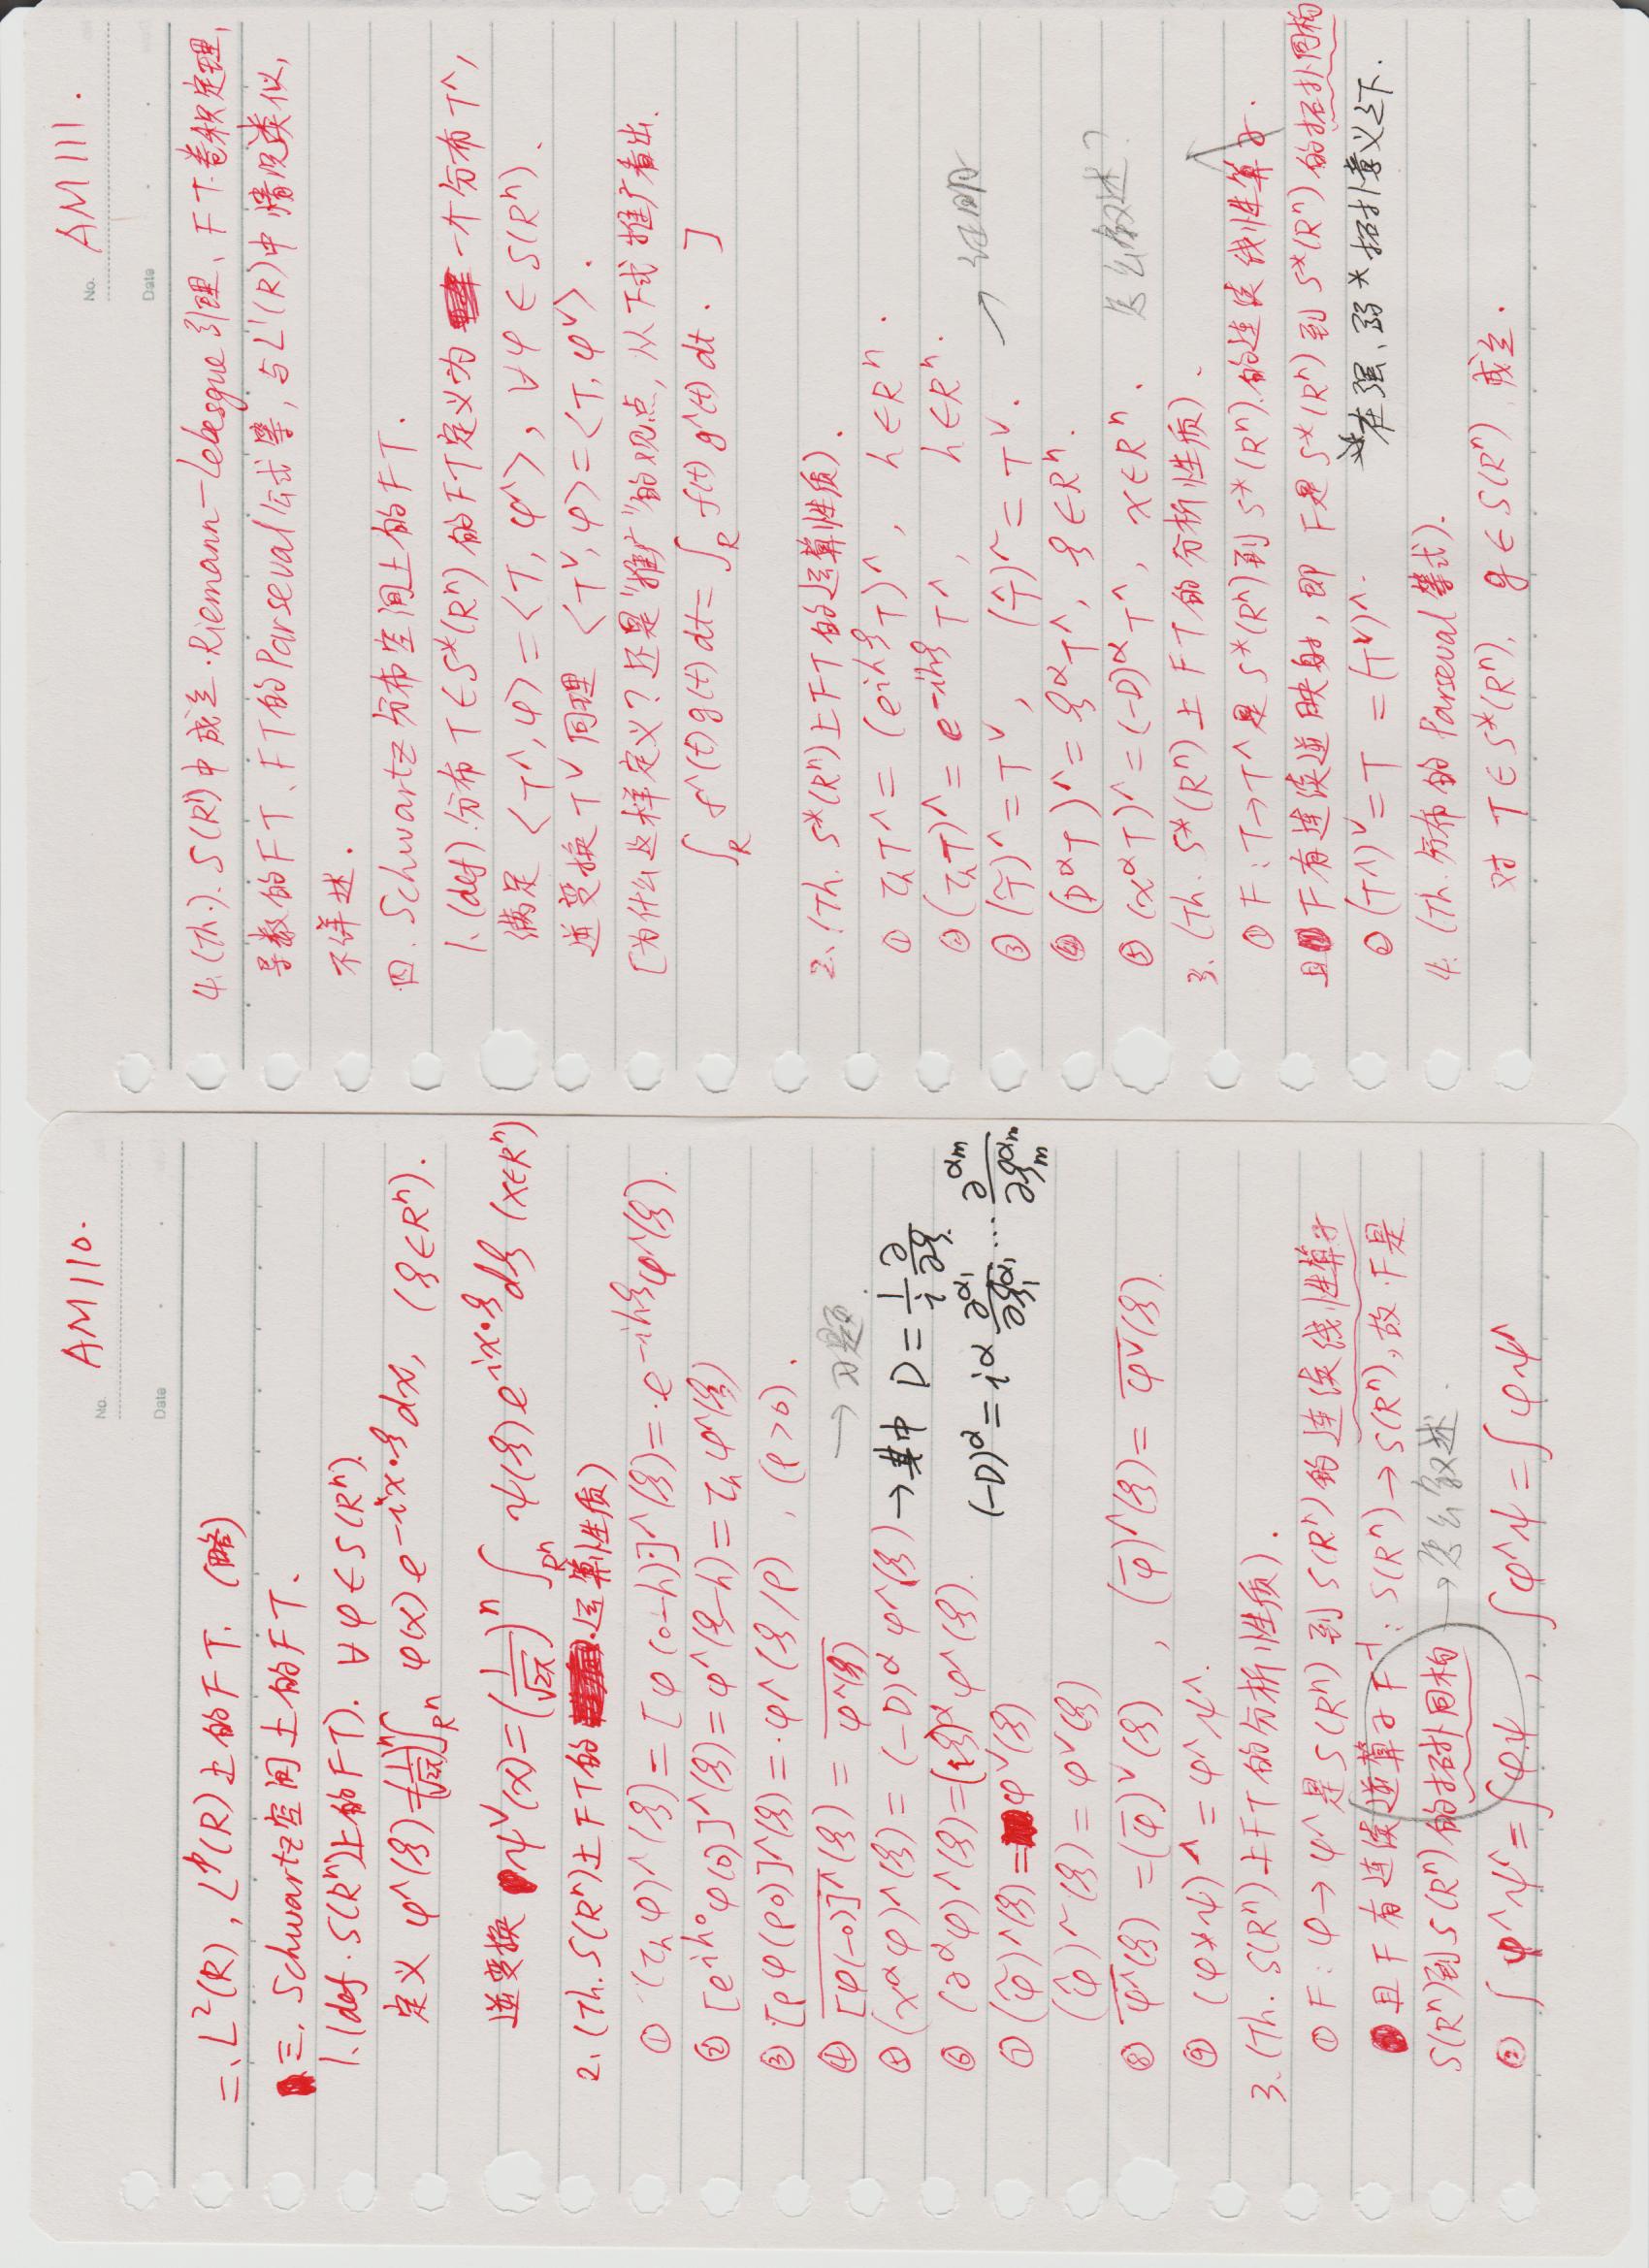 No. AM110.
Date
二、L²(R), Lᵖ(R)上的FT. (略)
三. Schwartz空间上的FT.
1. (def. S(Rⁿ)上的FT). ∀φ∈S(Rⁿ).
定义 φ^(ξ)=(1/√2π)ⁿ∫_Rⁿ φ(x)e^{-ix·ξ}dx, (ξ∈Rⁿ).
逆变换 ψ^∨(x)=(1/√2π)ⁿ ∫_Rⁿ ψ(ξ)e^{ix·ξ}dξ (x∈Rⁿ)
2. (Th. S(Rⁿ)上FT的运算性质)
① (τ_hφ)^(ξ)=[φ(∘-h)]^(ξ)=e^{-ihξ}φ^(ξ).
② [e^{ih∘}φ(∘)]^(ξ)=φ^(ξ-h)=τ_hφ^(ξ)
③ [ρφ(ρ∘)]^(ξ)=φ^(ξ/ρ), (ρ>0).
④ \overline{[φ(-∘)]^}(ξ)=\overline{φ^(ξ)} →习题.
⑤ (x^αφ)^(ξ)=(-D)^αφ^(ξ) →其中 D=\frac{1}{i}\frac{∂}{∂ξ}.
⑥ (∂^αφ)^(ξ)=(iξ)^αφ^(ξ).
(-D)^α=i^α \frac{∂^{α₁}}{∂ξ₁^{α₁}}…\frac{∂^{α_m}}{∂ξ_m^{α_m}}
⑦ (φ~)^(ξ)=φ^∨(ξ)
(φ^)~(ξ)=φ^∨(ξ)
⑧ \overline{φ^}(ξ)=(\overline{φ})^∨(ξ), (\overline{φ})^(ξ)=\overline{φ^∨}(ξ).
⑨ (φ*ψ)^=φ^ψ^.
3. (Th. S(Rⁿ)上FT的分析性质).
① F: φ→φ^是S(Rⁿ)到S(Rⁿ)的连续线性算子
且F有连续逆算子F⁻¹: S(Rⁿ)→S(Rⁿ), 故F是
S(Rⁿ)到S(Rⁿ)的拓扑同构 →怎么叙述.
② ∫φ^ψ^=∫φψ, ∫φ^ψ=∫φψ^
No. AM111.
Date
4. (Th.). S(Rⁿ)中成立Riemann-Lebesgue引理、FT卷积定理,
导数的FT、FT的Parseval公式等, 与L¹(R)中情况类似,
不详述.
四. Schwartz分布空间上的FT.
1. (def). 分布T∈S*(Rⁿ)的FT定义为一个分布T^,
满足 <T^,φ>=<T,φ^>, ∀φ∈S(Rⁿ).
逆变换T^∨同理 <T^∨,φ>=<T,φ^∨>.
[为什么这样定义? 还是"推广"的观点, 从下式推广看出.
∫_R f^(t)g(t)dt=∫_R f(t)g^(t)dt. ]
2. (Th. S*(Rⁿ)上FT的运算性质).
① τ_hT^=(e^{ihξ}T)^, h∈Rⁿ.
② (τ_hT)^=e^{-ihξ}T^, h∈Rⁿ.
→证明
③ (T~)^=T^∨, (T^)~=T^∨.
④ (D^αT)^=ξ^αT^, ξ∈Rⁿ.
⑤ (x^αT)^=(-D)^αT^, x∈Rⁿ. 怎么叙述?
3. (Th. S*(Rⁿ)上FT的分析性质).
① F: T→T^是S*(Rⁿ)到S*(Rⁿ)的连续线性算子.
且F有连续逆映射, 即F是S*(Rⁿ)到S*(Rⁿ)的拓扑同构
② (T^)^∨=T=(T^∨)^. 在强、弱*拓扑意义之下.
4. (Th. 分布的Parseval等式).
对T∈S*(Rⁿ), g∈S(Rⁿ)成立.